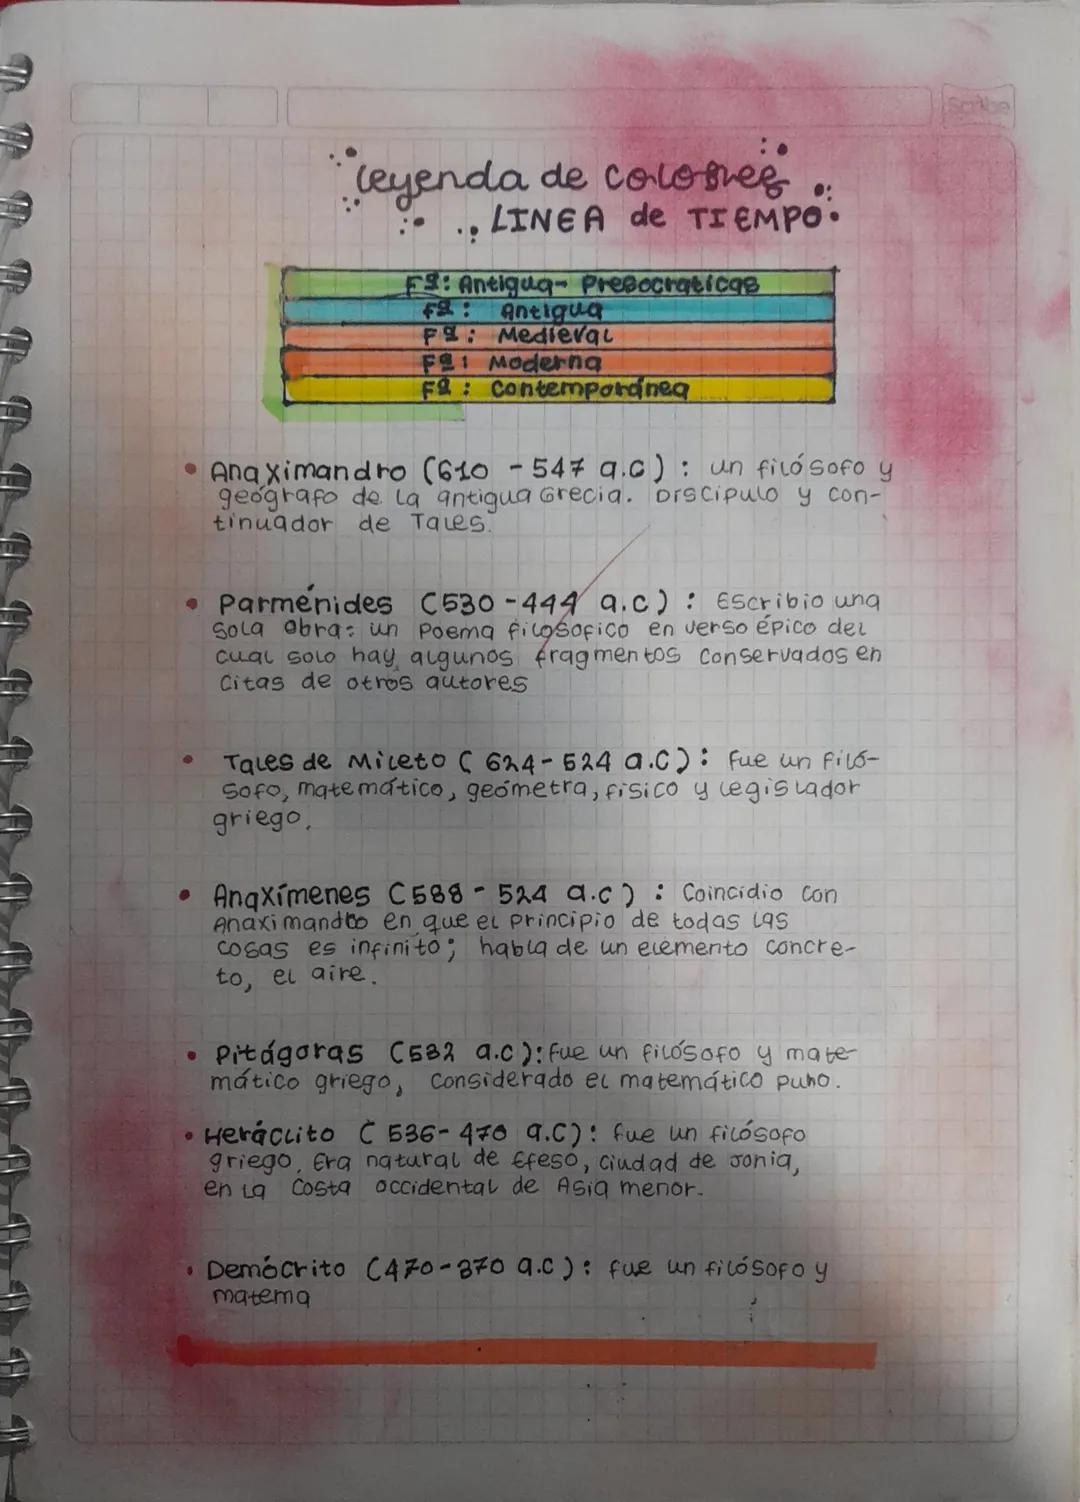 Scribe
Leyenda de colores
LINEA de TIEMPO.
Fª: Antigua- Presocraticas
Fª: Antigua
Fª: Medieval
Fª: Moderna
Fª: Contemporánea
• Anaximandro (610 - 547 a.c): un filósofo y
geógrafo de la antigua Grecia. Discipulo y con-
tinuador de Tales.
• Parménides (530-444 a.c): Escribio una
sola obra: un Poema filosofico en verso épico del
cual solo hay algunos fragmentos conservados en
citas de otros autores
• Tales de Mileto (624-524 a.c): fue un filó-
sofo, matemático, geómetra, fisico y legislador
griego.
• Anaxímenes (588-524 a.c): Coincidio con
Anaximandro en que el principio de todas las
cosas es infinito; habla de un elemento concre-
to, el aire.
• Pitágoras (582 a.c): fue un filósofo y mate-
mático griego, considerado el matemático puro.
• Heráclito (536-470 a.c): fue un filósofo
griego. Era natural de Efeso, ciudad de Jonia,
en la costa occidental de Asia menor.
• Demócrito (470-370 a.c): fue un filósofo y
matema